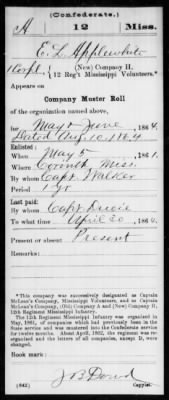 (Confederate.)
A 12 Miss.
E. L. Applewhite
1 Corpl., (New) Company H,
12 Reg't Mississippi Volunteers.*
Appears on
Company Muster Roll
of the organization named above,
for May & June, 1864.
Dated Aug. 10, 1864
Enlisted:
When May 5, 1861.
Where Corinth Miss.
By whom Capt. Walker
Period 1 yr
Last paid:
By whom Capt.
To what time April 30, 1864.
Present or absent Present
Remarks:
*This company was successively designated as Captain
McLean's Company, Mississippi Volunteers, and as Captain
McLean's Company, (Old) Company A and (New) Company H,
12th Regiment Mississippi Infantry.
The 12th Regiment Mississippi Infantry was organized in
May, 1861, of companies which had previously been in the
State service and was mustered into the Confederate service
for twelve months. About April, 1862, the regiment was re-
organized and the letters of all companies, except D, were
changed.
Book mark:
(642) Copyist.